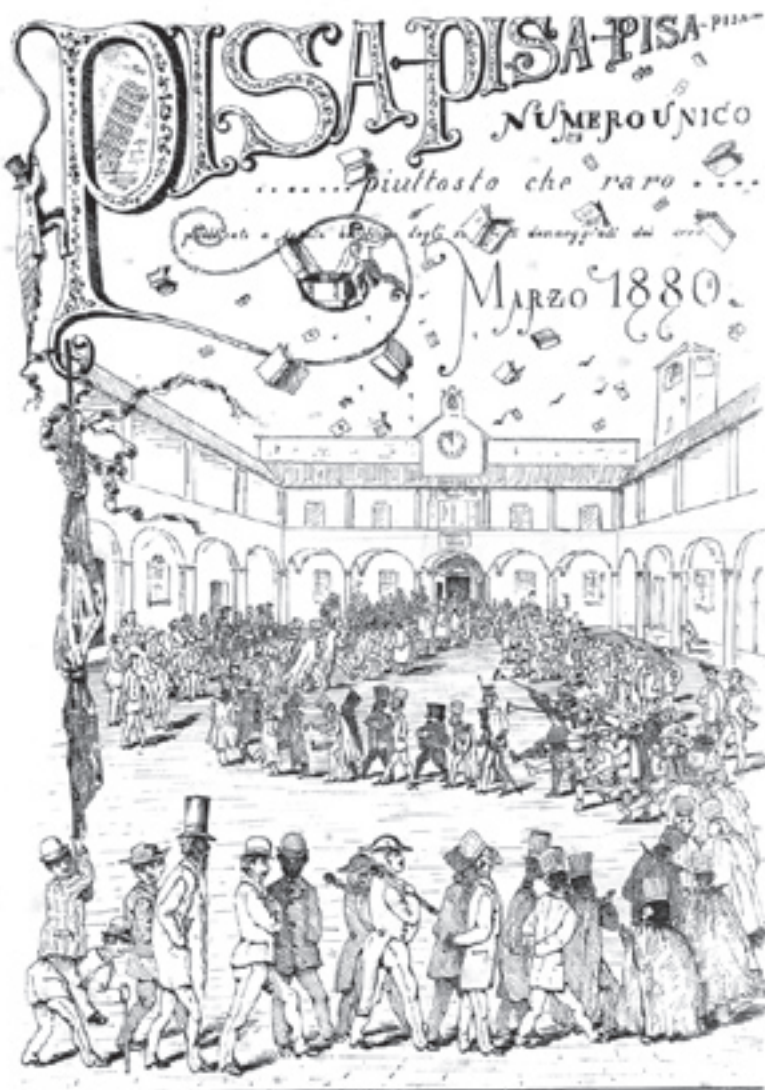 PISA-PISA-PISA-PISA-
NUMERO UNICO
......piuttosto che raro....
a degli danneggiati dai
MARZO 1880.